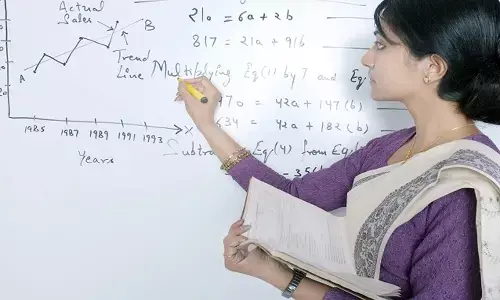 Actual
Sales
B
Trend
Line
A
1985 1987 1989 1991 1993
X
Years
210 = 6a + 2b
817 = 21a + 91b
Multiplying Eq(1) by 7 and Eq
470 = 42a + 147(b)
634 = 42a + 182(b)
Subtra Eq(4) from Eq